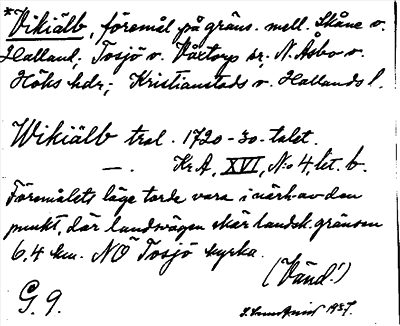 *Vikiälb, föremål på gräns. mell. Skåne o.
Halland; Tosjö o. Våxtorp sr, N. Åsbo o.
Höks hdr; Kristianstads o. Hallands l.
Wikiälb tral. 1720-30-talet.
—. Kr A, XVI, No 4, lit. b.
Föremålets läge torde vara i närh. av den
punkt, där landsvägen skär landsk. gränsen
6,4 km. NO Tosjö kyrka.
(Vänd!)
G. 9.
1937.